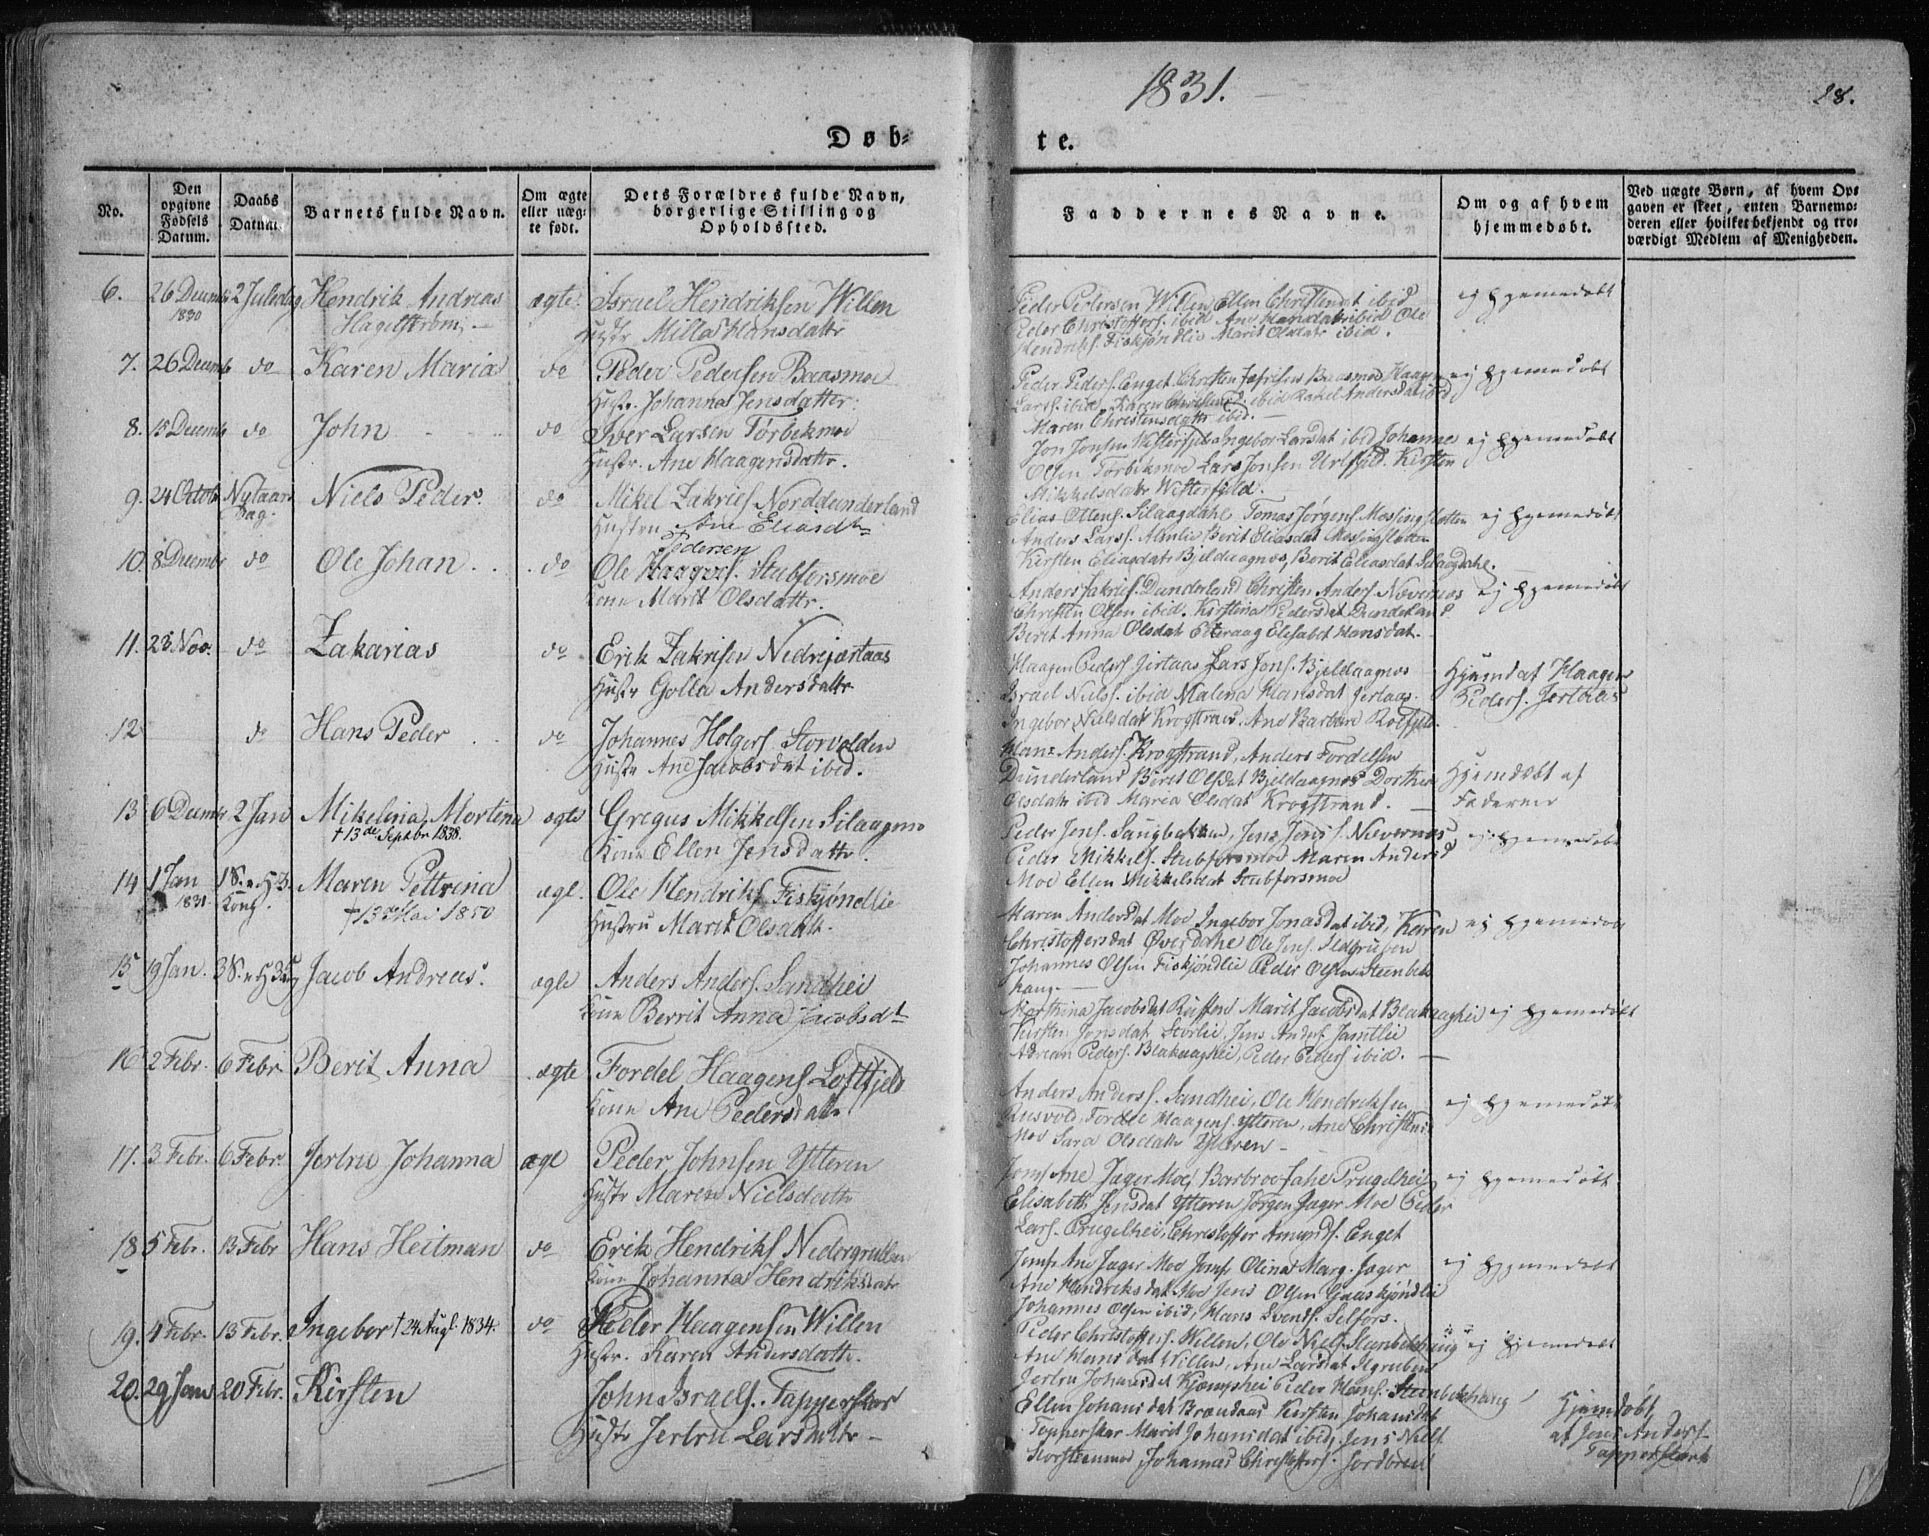 1831.
28.
Døb-
te.
No.
Den opgivne Fødsels Datum.
Daabs Datum.
Barnets fulde Navn.
Om ægte eller uæg- te født.
Dets Forældres fulde Navn, borgerlige Stilling og Opholdssted.
Faddernes Navne.
Om og af hvem hjemmedøbt.
Ved uægte Børn, af hvem Op- gaven er skeet, enten Barnemo- deren eller hvilket bekjendt og tro- værdigt Medlem af Menigheden.
6. 26 Decemb 2 Juledag Hendrik Andreas ægte. Israel Hendriksen Willen
1830 Hagelstrøm. Hustr Milla Hansdattr
Peder Pedersen Willen Ellen ibid
Peder Christoffers. ibid Ane Hansdatr ibid Ole
Hendriks. Fiskjøndlie Marit Olsdatr ibid.
ej hjemmedøbt
7. 26 Decemb do Karen Maria do Peder Pedersen Baasmoe
Hustr. Johanna Jensdatter.
Peder Peders. Enget Christen Baasmoe Haagen
Lars. ibid, Karen ibid Rakel Andersdat ibid,
Maren Christensdattr ibid.
ej hjemmedøbt
8. 15 Decemb do John do Iver Larsen Tørbekmoe
Hustr. Ane Haagensdattr.
Jon Jonsen Westerfjeld Ingebor Larsdat ibid Johannes
Olsen Tørbekmoe Lars Jonsen Kirsten
Mikkelsdatr Westerfjeld.
ej hjemmedøbt
9. 24 Octob Nytaars Niels Peder. do Mikel Zakries Norddunderland
Dag. Hustru Ane Eliasdtr
Elias Ottens. Silaagdahl Tomas Jørgens. Messingsletten
Anders Lars. Almlie Berit Eliasdat Messingsletten
Kirsten Eliasdatr Bjeldaagnes, Berit Eliasdat Silaagdahl.
ej hjemmedøbt
10. 8 Decembr do Ole Johan do Ole Stubforsmoe
Pedersen
Kone Marit Olsdattr.
Anders Zakries. Dunderland Christen Anders. Nævernes
Christen Olsen ibid, Kirstina Pedersdat Dunderland
Berit Anna Olsdat Elisabet Hansdat.
ej hjemmedøbt
11. 23 Nov. do Zakarias do Erik Zakrisen Nedrejærtaas
Hustr Golla Andersdattr
Haagen Peders. Jertaas Lars Jons. Bjeldaagnes
Israel Niels. ibid Malena Hansdat Jertaas.
Ingebor Nielsdat Krogstrand, Ane Barbara
Hjemdøbt Haagen
Peders. Jertaas
12 do Hans Peder do Johannes Holgers. Storvolden
Hustr Ane Jacobsdat ibid.
Hans Anders. Krogstrand, Anders Fordelsen
Dunderland Berit Olsdat Bjeldaagnes Dorthea
Olsdatr ibid Maria Olsdat Krogstrand.
Hjemdøbt af
Faderner
13 6 Decemb 2 Jan Mikelina Mortina ægte Gregus Mikkelsen Silaagmo
† 13de Septbr 1838. Kone Ellen Jensdattr.
Peder Jens. Jens Jens. Nævernes
Peder Mikkels. Stubforsmoe Maren Andersd
Moe Ellen Mikkelsdat Stubforsmoe
ej hjemmedøbt
14 1 Jan 1 S. e. H 3. Maren Pettrina ægt. Ole Hendriks. Fiskjøndlie
1831. Kong. † 13de Mai 1850 Hustru Marit Olsdattr.
Maren Andersdat Moe, Ingebor Jonasdat ibid, Karen
Christoffersdat Øverdahl Ole Jens. Ildgruben
Johannes Olsen Fiskjøndlie Peder Olsen Steenbek
haug.
ej hjemmedøbt
15 19 Jan. 3 S. e. H 3 Kong Jacob Andreas. ægte Anders Anders. Sandhei
Kone Berrit Anna Jacobsdtr
Jacobsdat Marit Jacobsdat Blakaaghei
Kirsten Jonsdat Storlie, Jens Anders.
Adrian Peders. Blakaaghei, Peder Peders. ibid.
ej hjemmedøbt
16 2 Febr. 6 Febr. Berit Anna ægte Fordel Haagens. Loftfjeld
Kone Ane Pedersdattr
Anders Anders. Sandhei, Ole Hendriksen
Rusvold, Fordel Haagens. Ytteren, Ane
Moe Sara Olsdattr Ytteren
ej hjemmedøbt
17. 3 Febr. 6 Febr. Jertru Johanna ægt Peder Johnsen Ytteren
Hustr Maren Nielsdattr
Jomf Ane Jager Moe, Barbroe Prugelhei
Elisabeth Jensdat Ytteren Jørgen Jager Moe Peder
Lars. Prugelhei, Christoffer Amunds. Enget
ej hjemmedøbt
18 5 Febr. 13 Febr Hans Heitman do Erik Hendriks. Nedergruben
Kone Johanna Hendriksdatr
Jomf Ane Jager Moe Jomf Olina Marg. Jager
Ane Hendriksdat Moe Jens Olsen Gaaskjøndlie
Johannes Olsen ibid, Hans Svends. Selfors.
ej hjemmedøbt
19. 4 Febr. 13 Febr. Ingebor † 24 Augl. 1834. do Peder Haagensen Willen
Hustr. Karen Andersdattr.
Peder Christoffers. Willen, Ole Niels. Steenbekhaug
Ane Hansdat Willen, Ane Larsdat
Jertru Johansdat Kjæmphei Peder Hans. Steenbekhaug
ej hjemmedøbt
20. 29 Jan 20 Febr. Kirsten John Israels. Tapperskar
Hustr Jertru Larsdattr
Ellen Johansdat Brændaas Kirsten Johansdat
Tapperskar Marit Johansdat ibid, Jens Niels.
Storsteenmoe Johannes Christoffers. Jordbroe
Hjemdøbt,
af Jens Anders.
Tapperskar